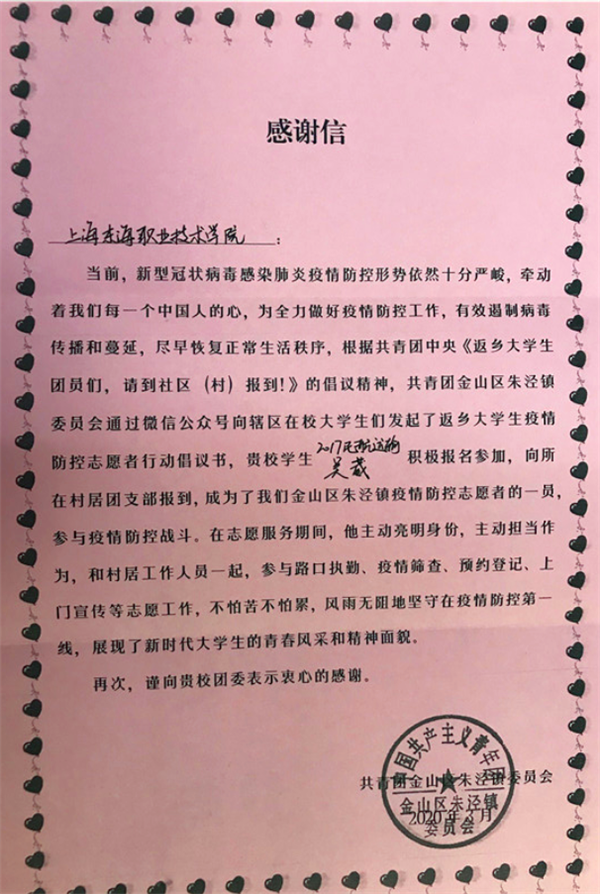 感谢信
上海东海职业技术学院：
当前，新型冠状病毒感染肺炎疫情防控形势依然十分严峻，牵动
着我们每一个中国人的心，为全力做好疫情防控工作，有效遏制病毒
传播和蔓延，尽早恢复正常生活秩序，根据共青团中央《返乡大学生
团员们，请到社区（村）报到！》的倡议精神，共青团金山区朱泾镇
委员会通过微信公众号向辖区在校大学生们发起了返乡大学生疫情
2017民航运输
防控志愿者行动倡议书，贵校学生吴葳积极报名参加，向所
在村居团支部报到，成为了我们金山区朱泾镇疫情防控志愿者的一员，
参与疫情防控战斗。在志愿服务期间，他主动亮明身份，主动担当作
为，和村居工作人员一起，参与路口执勤、疫情筛查、预约登记、上
门宣传等志愿工作，不怕苦不怕累，风雨无阻地坚守在疫情防控第一
线，展现了新时代大学生的青春风采和精神面貌。
再次，谨向贵校团委表示衷心的感谢。
共青团金山区朱泾镇委员会
2020年3月
中国共产主义青年团
金山区朱泾镇
委员会